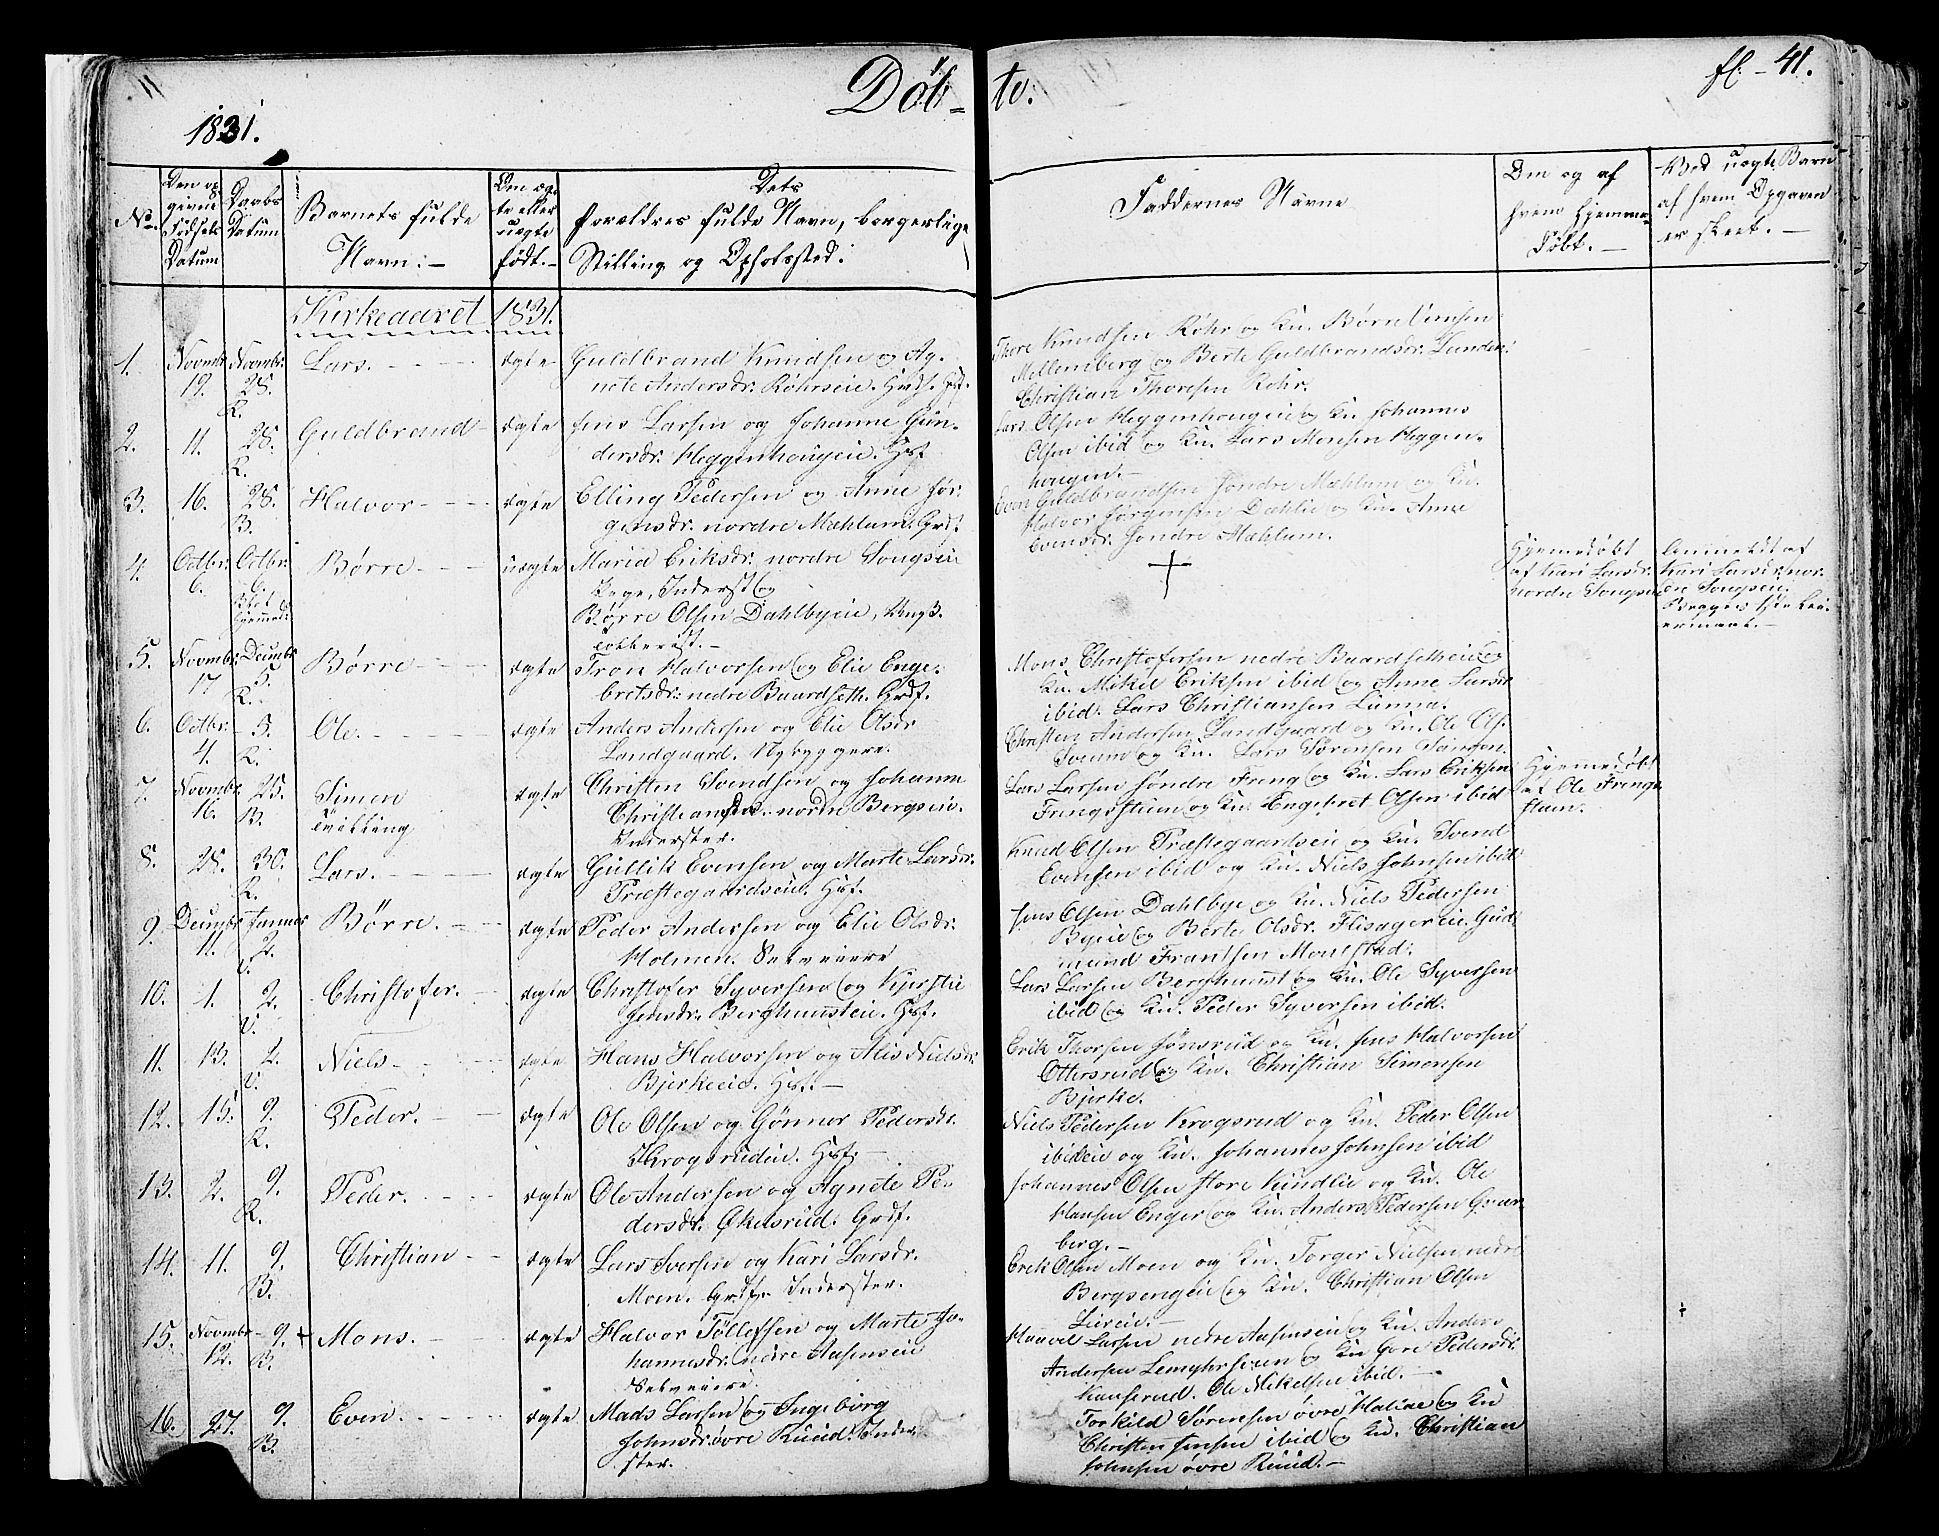 Døb- te.
fl. 41.
1831.
No.
Den opgivne Fødsels Datum
Daabs Datum
Barnets fulde Navn:-
Om ægte eller uægte født.-
Dets Forældres fulde Navn, borgerlige Stilling og Opholdssted:
Faddernes Navne
Om og af hvem hjemmedøbt.-
Ved uægte Barn af hvem Opgaven er skeet.-
Kirkeaaret 1831.
1. Novmbr. 19. Novmbr. 28. K. Lars. ægte Guldbrand Knudsen og Ag-
nete Andersdr. Röhrseie. Hmf.
Thore Knudsen Röhr og Ku. Börre Simsen
Mellemberg og Berte Guldbrandsdr. Lunde.
Christian Thoresen Röhr.
2. 11. 28. K. Guldbrand ægte Jens Larsen og Johanne Gun-
dersdr. Heggenhougeie. Hmf
Lars Olsen Heggenhougeie og Ku. Johannes
Olsen ibid og Ku. Lars Monsen Heggen-
hougen.-
3. 16. 28. B. Halvor ægte Elling Pedersen og Anne Jör-
gensdr. nordre Mæhlum. Grdf
Even Guldbrandsen söndre Mæhlum og Ku.
Halvor Jörgensen Dæhlie og Ku. Anne
Evensdr. söndre Mæhlum.
4. Octbr. 6. Octbr. 6. Blot hjemmed. Börre uægte Maria Eriksdr. nordre Songseie
Pige, Inderst og
Börre Olsen Dahlbyeie, Ungk.
Hjemmedöbt
af Kari Larsdr.
nordre Songseie
Anmeldt af
Kari Larsdr. nor-
dre Songseie.
5. Novmbr. 17 Decmbr. 5. K. Börre ægte Tron Halvorsen og Elie Enge-
bretsdr. nedre Baardseth. Grdf.
Mons Christofersen nedre Baardsetheie og
Ku. Mikel Eriksen ibid og Anne Larsdr
ibid. Lars Christiansen Lunna.
6. Octbr. 4. 5. K. Ole. ægte Anders Andersen og Elie Olsdr.
Landgaard. Nybyggere.
Christen Andersen Landgaard og Ku. Ole Ols.
Sveum og Ku. Lars Sörensen
7. Novmbr. 16. 25. B. Simen
Tvilling ægte Christen Svendsen og Johanne
Christiansdr. nordre Bergseie.
Inderster.
Lars Larsen söndre Freng og Ku. Lars Eriksen
Frengsstuen og Ku. Engebret Olsen ibid
Hjemmedöbt
af Ole Frengs-
stuen.
8. 28. 30. K. Lars. ægte Gullik Evensen og Marte Larsdr.
Præstegaardseie. Hmf.
Knud Olsen Præstegaardseie og Ku. Svend
Evensen ibid og Ku. Niels Johnsen ibid
9. Decmbr. 11. Januar 2. V. Börre. ægte Peder Andersen og Elie Olsdr.
Holmen. Selveiere
Jens Olsen Dahlbye og Ku. Niels Pedersen
Byeie og Berte Olsdr. Flisagereie. Gud-
mund Frantsen Monsstad.
10. 1. 2. V. Christofer. ægte Christofer Syversen og Kjerstie
Jensdr. Berghunsteie. Hmf.
Lars Larsen Berghunst og Ku. Ole Syversen
ibid og Ku. Peder Syversen ibid.
11. 13. 2. V. Niels ægte Hans Halvorsen og Alis Nielsdr.
Bjerkeeie. Hmf.-
Erik Thorsen Jönsrud og Ku. Jens Halvorsen
Ottersrud og Ku. Christian Simensen
Bjerke.
12. 15. 9. K. Peder. ægte Ole Olsen og Gönnor Pedersdr.
Krogsrudeie. Hmf.-
Niels Pedersen Krogsrud og Ku. Peder Olsen
ibideie og Ku. Johannes Johnsen ibid
13. 2. 9. K. Peder. ægte Ole Andersen og Agnete Pe-
dersdr. Økelsrud. Grdf.
Johannes Olsen store Kindlie og Ku. Ole
Hansen Enger og Ku. Anders Pedersen
berg.-
14. 11. 9. B. Christian ægte Lars Iversen og Kari Larsdr.
Moen. Grdf. Inderster.
Erik Olsen Moen og Ku. Torger Nielsen nedre
Bergsengeie og Ku. Christian Olsen
Lieeie.-
15. Novmbr. 12. 9. B. + Mons. ægte Halvor Tollefsen og Marte Jo-
hannesdr. nedre Aasenseie
Selveiere.
Haavel Larsen nedre Aasenseie og Ku. Anders
Andersen og Ku Gore Pedersdr.
Kanserud. Ole Mikelsen ibid.-
16. 27. 9. B. Even. ægte Mads Larsen og Ingeborg
Johnsdr. övre Ruud. Inder-
ster.
Torkild Sörensen övre Halie og Ku
Christen Jensen ibid og Ku. Christian
Johnsen övre Ruud.-